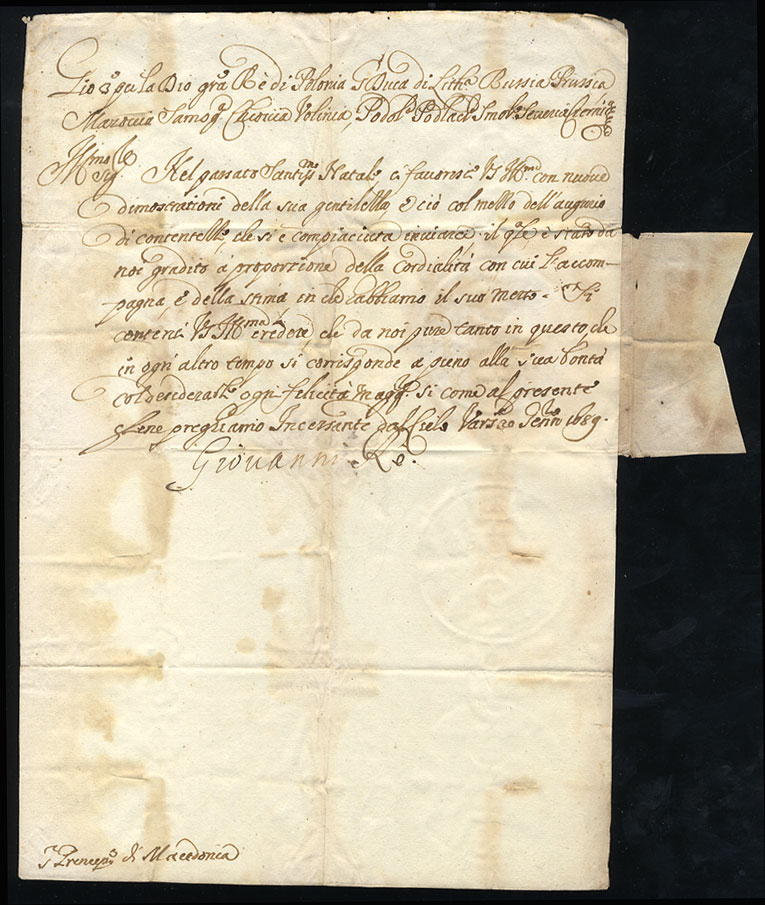 Gio 3º per la Dio grã Rè di Polonia G Duca di Littª Russia Prussia
Mazovia Samogª Chiovia Volinia, Podolª Podlachª Smolª Severia Cerniª
Illmo Sigre Nel passato Santissº Natale ci favorisce VS Illmª con nuove
dimostrationi della sua gentilezza, e ciò col mezzo dell'augurio
di contentezze, che si è compiaciuta inviarci: il qle è stato da
noi gradito à proporzione della Cordialità con cui l'accom-
pagna, e della stima in che habbiamo il suo merto.
contenti VS Illma credere, che da noi pure tanto in questo, che
in ogni altro tempo si corrisponde a pieno alla sua bontà
col desiderarle ogni felicità magge si come al presente
glene preghiamo Incessante dal Cielo Varsª 20 Genro 1689.
Giovanni Rè.
Prencipe di Macedonia